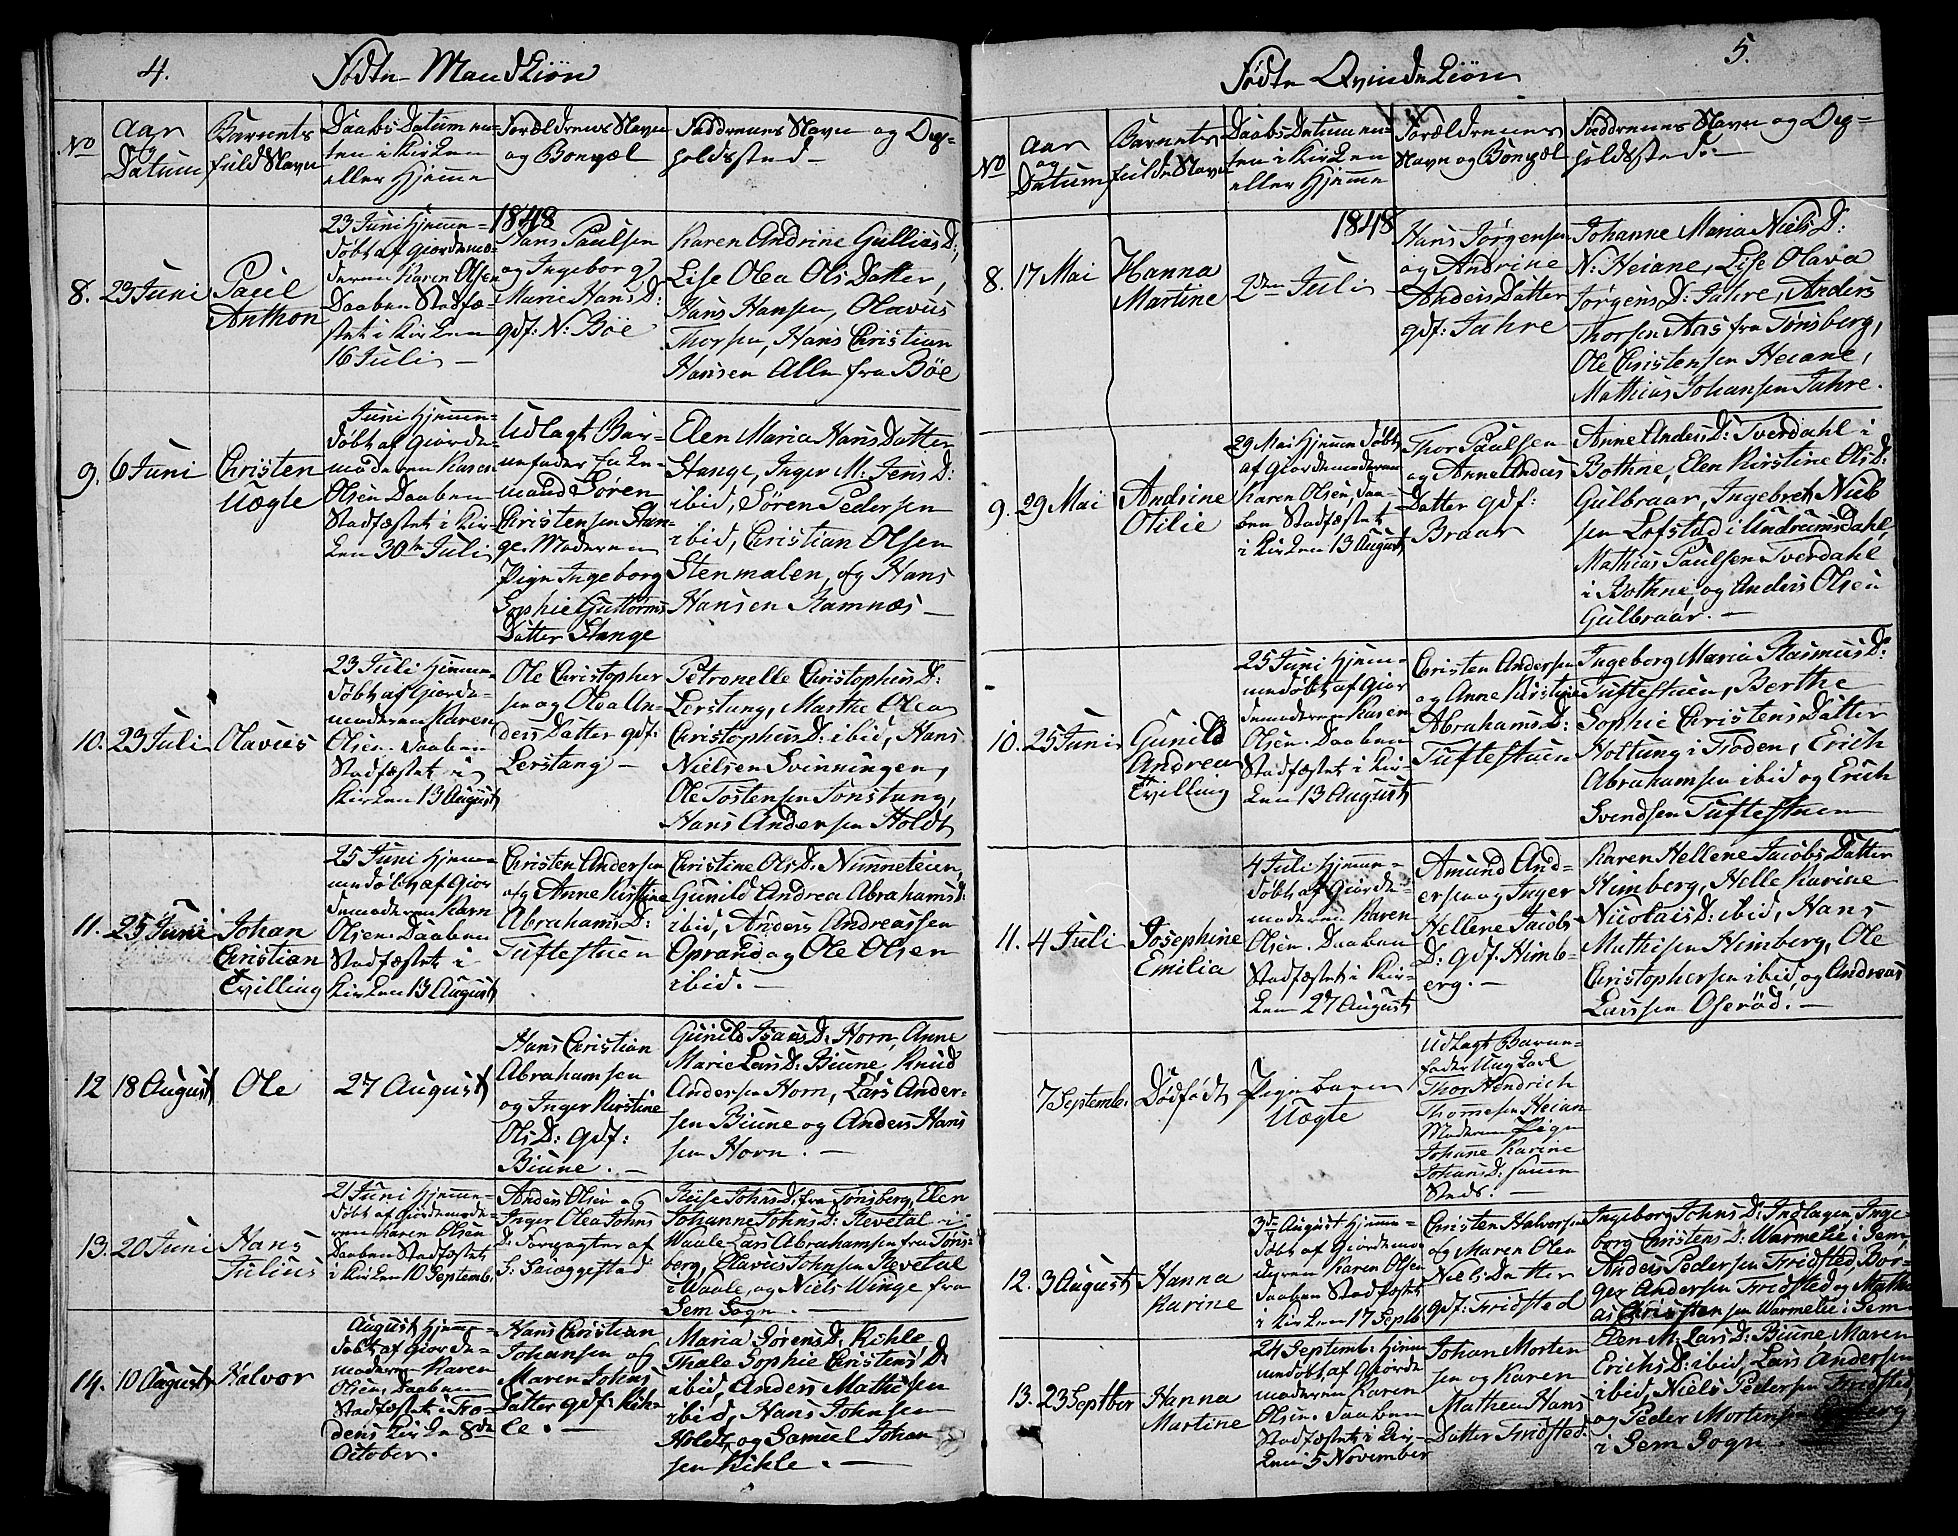 4.
Fødte Mandkiøn
No
Aar
og
Datum
Barnets
fuld Navn
Daabs Datum en-
ten i Kirken
eller Hjemme
Forældrenes Navn
og Bopæl
Faddrenes Navn og Op-
holdssted
1848
8.
23 Juni
Paul
Anthon
23 Juni Hjemme-
døbt af Giordemo-
deren Karen Olsen
Daaben Stadfæ-
stet i Kirken
16 Juli
Hans Paulsen
og Ingeborg
Marie Hans D:
gdf: N: Böe
Karen Andrine Gullius D:,
Lise Olea Ols Datter,
Hans Hansen, Olavus
Thorsen, Hans Christian
Hansen Alle fra Böe
9.
6 Juni
Christen
Uægte
Juni Hjemme-
døbt af Giorde-
moderen Karen
Olsen Daaben
Stadfæstet i Kir-
ken 30te Juli
Udlagt Bar-
nefader En-
mand Søren
Christensen Stan-
ge. Moderen
Pige Ingeborg
Sophie Guttorms
Datter Stange
Elen Maria Hans Datter
Stange, Inger M: Jens D:
ibid, Søren Pedersen
ibid, Christian Olsen
Stenmalen, og Hans
Hansen Ramnæs
10.
23 Juli
Olavus
23 Juli Hjemme-
døbt af Giorde-
moderen Karen
Olsen. Daaben
Stadfæstet i
Kirken 13 August
Ole Christopher
sen og Olea An-
ders Datter gdf:
Lerstang
Petronelle Christophers D:
Lerstang, Marthe Olea
Christophers D: ibid, Hans
Nielsen Svinningen,
Ole Tostensen Tonstang,
Hans Andersen Holdt
11.
25 Juni
Johan
Christian
Tvilling
25 Juni Hjem-
medøbt af Gior
demoderen Karen
Olsen. Daaben
Stadfæstet i
Kirken 13 August
Christen Andersen
og Anne Kirstine
Abrahams D:
Tuftestuen
Christine Ols D: Nunneteien,
Gunild Andrea Abrahams D:
ibid, Anders Andreassen
Oprand og Ole Olsen
ibid.
12
18 August
Ole
27 August
Hans Christian
Abrahamsen
og Inger Kirstine
Ols D: gdf:
Biune.
Gunild Isaks D: Horn, Anne
Marie Lars D: Biune, Knud
Andersen Horn, Lars Ander-
sen Biune og Anders Hans
sen Horn.
13.
20 Juni
Hans
Julius
21 Juni Hjemme-
døbt af Giordemode-
ren Karen Olsen
Daaben Stadfæstet
i Kirken 10 Septemb.
Anders Olsen og
Inger Olea Johns
D: Forpagter af
S: Snæggestad
Lise Johns D: fra Tønsberg, Elen
Johanne Johns D: Revetal i
Waale, Lars Abrahamsen fra Tøns-
berg, Olavus Johnsen Revetal
i Waale, og Niels Winge fra
Sem Sogn.
14.
10 August
Halvor
August Hjemme-
døbt af Giorde-
moderen Karen
Olsen, Daaben
Stadfæstet i Fro-
dens Kirke 8de
October.
Hans Christian
Johansen og
Maren Johns
Datter gdf: Kih-
le.
Maria Sörens D: Kihle,
Thale Sophie Christens D:
ibid, Anders Mathisen
ibid, Hans Johnsen
Holdt, og Samuel Johan
sen Kihle.
5.
Fødte Qvindekiön
No
Aar
og
Datum
Barnets
fulde Navn
Daabs Datum en-
ten i Kirken
eller Hjemme
Forældrenes
Navn og Bopæl
Faddrenes Navn og Op-
holdssted.
1848
8.
17 Mai
Hanna
Martine
2den Juli
Hans Jørgensen
og Andrine
Anders Datter
gdf: Jahre
Johanne Maria Niels D:
N: Heiane, Lise Olava
Jørgens D: Jahre, Anders
Thorsen Aas fra Tønsberg,
Ole Christensen Heiane,
Mathias Johansen Jahre.
9.
29 Mai
Andrine
Otilie
29 Mai Hjemme døbt
af Giordemoderen
Karen Olsen, Daa-
ben Stadfæstet
i Kirken 13 August
Thor Paulsen
og Anne Anders
Datter gdf:
Braar
Anne Anders D: Tverdahl i
Bothne, Elen Kirstine Ols D:
Gulbraar, Ingebret Niel-
sen Lofstad i Undrumsdahl,
Mathias Paulsen Tverdahl
i Bothne, og Anders Olsen
Gulbraar.
10.
25 Juni
Gunild
Andrea
Tvilling
25 Juni Hjem-
medøbt af Gior
demoderen Karen
Olsen. Daaben
Stadfæstet i Kir-
ken 13 August
Christen Andersen
og Anne Kirstine
Abrahams D:
Tuftestuen
Ingeborg Maria Rasmus D:
Tuftestuen, Berthe
Sophie Christens Datter
Holtung i Froden, Erich
Abrahamsen ibid og Erich
Svendsen Tuftestuen
11.
4 Juli
Josephine
Emilia
4 Juli Hjemme-
døbt af Giorde-
moderen Karen
Olsen. Daaben
Stadfæstet i Kir-
ken 27 August
Amund And-
ersen og Inger
Hellene Jacobs
D: gdf: Himb-
erg.
Karen Hellene Jacobs Datter
Himberg, Helle Karine
Nicolais D: ibid, Hans
Mathisen Himberg, Ole
Christophersen ibid, og Andreas
Larssen Oserød.
7 Septemb.
Dødfødt
Pigebarn
Uægte
Udlagt Barne-
fader Ung Carl
Thor Hendrich
Thomesen Heian
Moderen Pige
Johane Karine
Johans D: samme
Steds.
12.
3 August
Hanna
Karine
3de August Hjemme-
døbt af Giordemo
deren Karen Olsen
Daaben Stadfæstet
i Kirken 17 Septb.
Christen Halvorsen
og Maren Olea
Niels Datter
gdf: Fridsted
Ingeborg Johns D: Indlagen, Inge-
borg Christens D: Warmelie i Sem,
Anders Pedersen Fridsted, Bor-
ger Andersen Fridsted og Mathi-
as Christensen Warmelie i Sem
13.
23 Septbor
Hanna
Martine
24 Septemb: Hjem
medøbt af Giorde
moderen Karen
Olsen. Daaben
Stadfæstet i Kir-
ken 5 November
Johan Morten
sen og Karen
Mathea Hans
Datter Fridsted.
Elen M: Lars D: Biune, Maren
Erichs D: ibid, Lars Andersen
ibid, Niels Pedersen Fridsted,
og Peder Mortensen
i Sem Sogn.